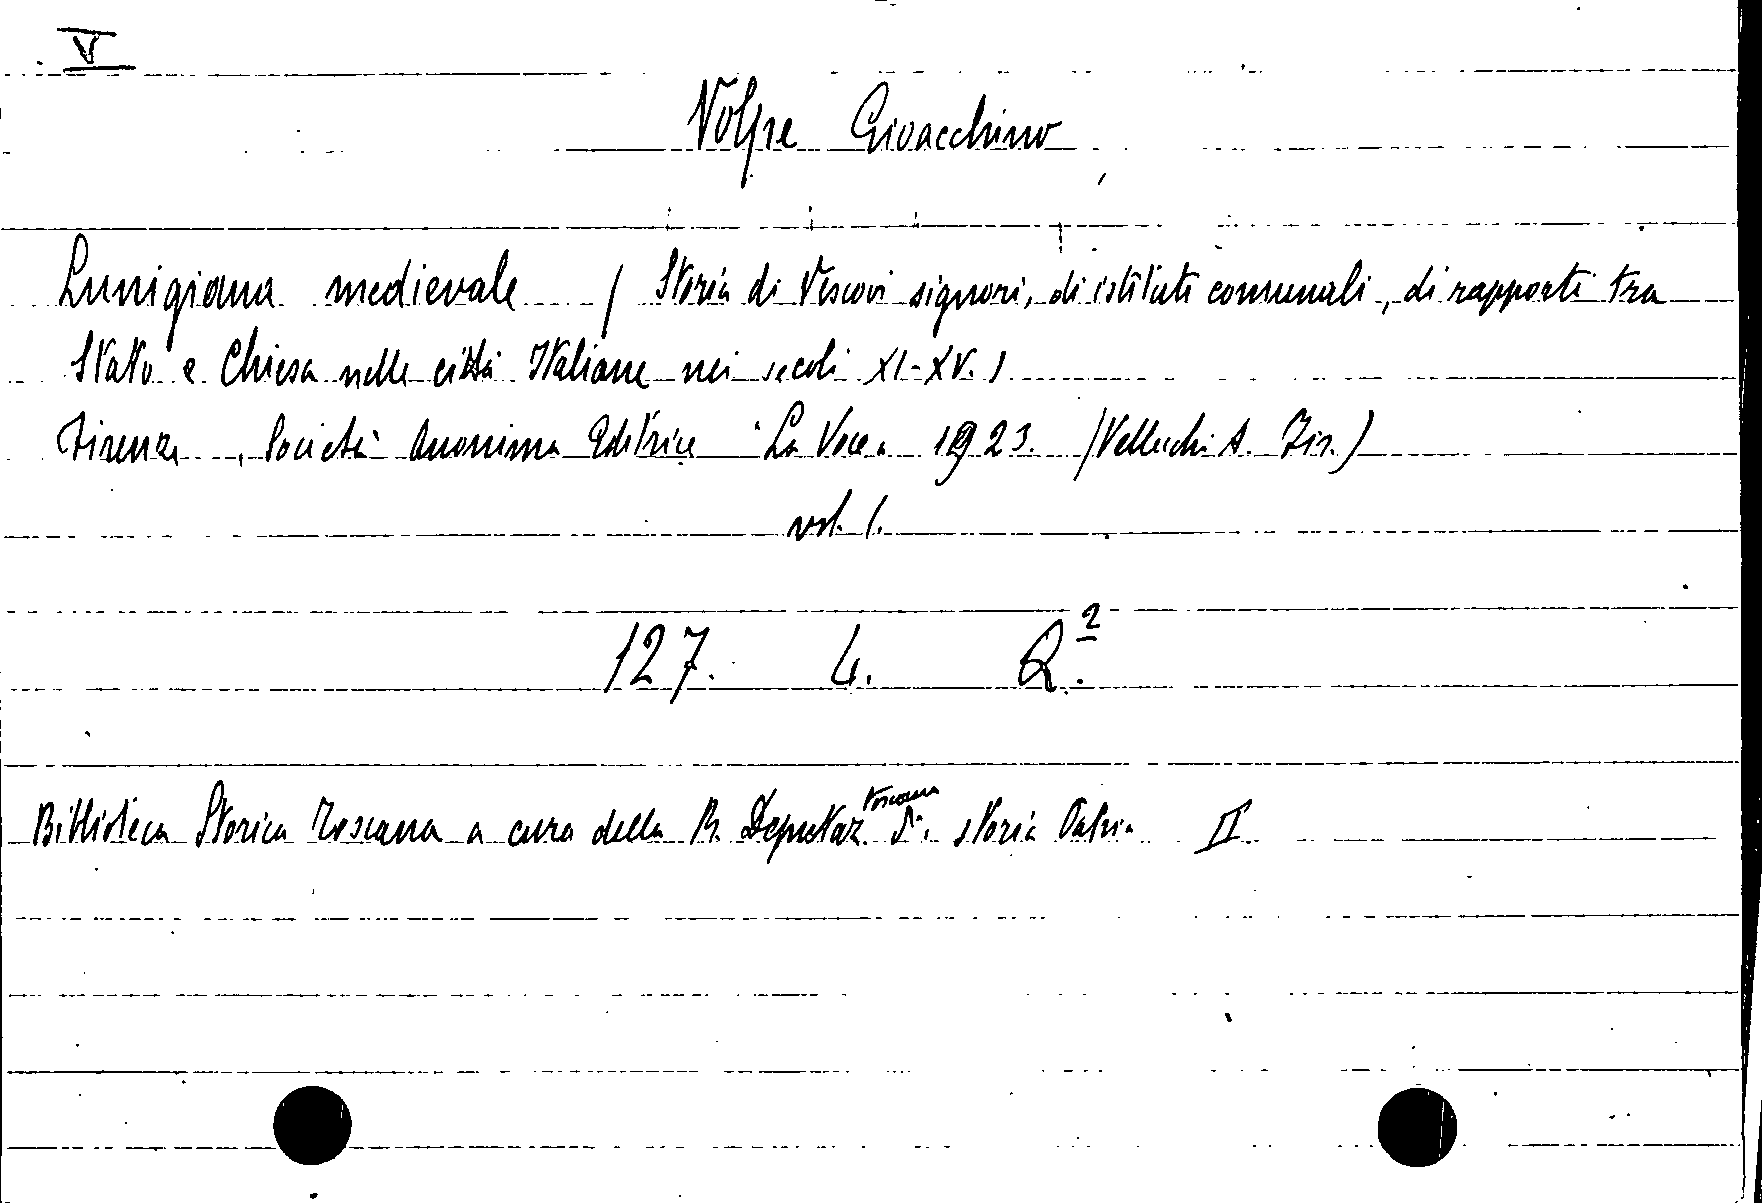 V
Volpe Gioacchino
Lunigiana medievale ( Storia di Vescovi signori, di istituti comunali, di rapporti tra
Stato e Chiesa nelle città Italiane nei secoli XI-XV. )
Firenze, Società Anonima Editrice "La Voce" 1923. (Vallecchi A. Fir.)
vol. 1.
127. 4. Q.²
Biblioteca Storica Toscana a cura della R. Deputaz. toscana di storia Patria II